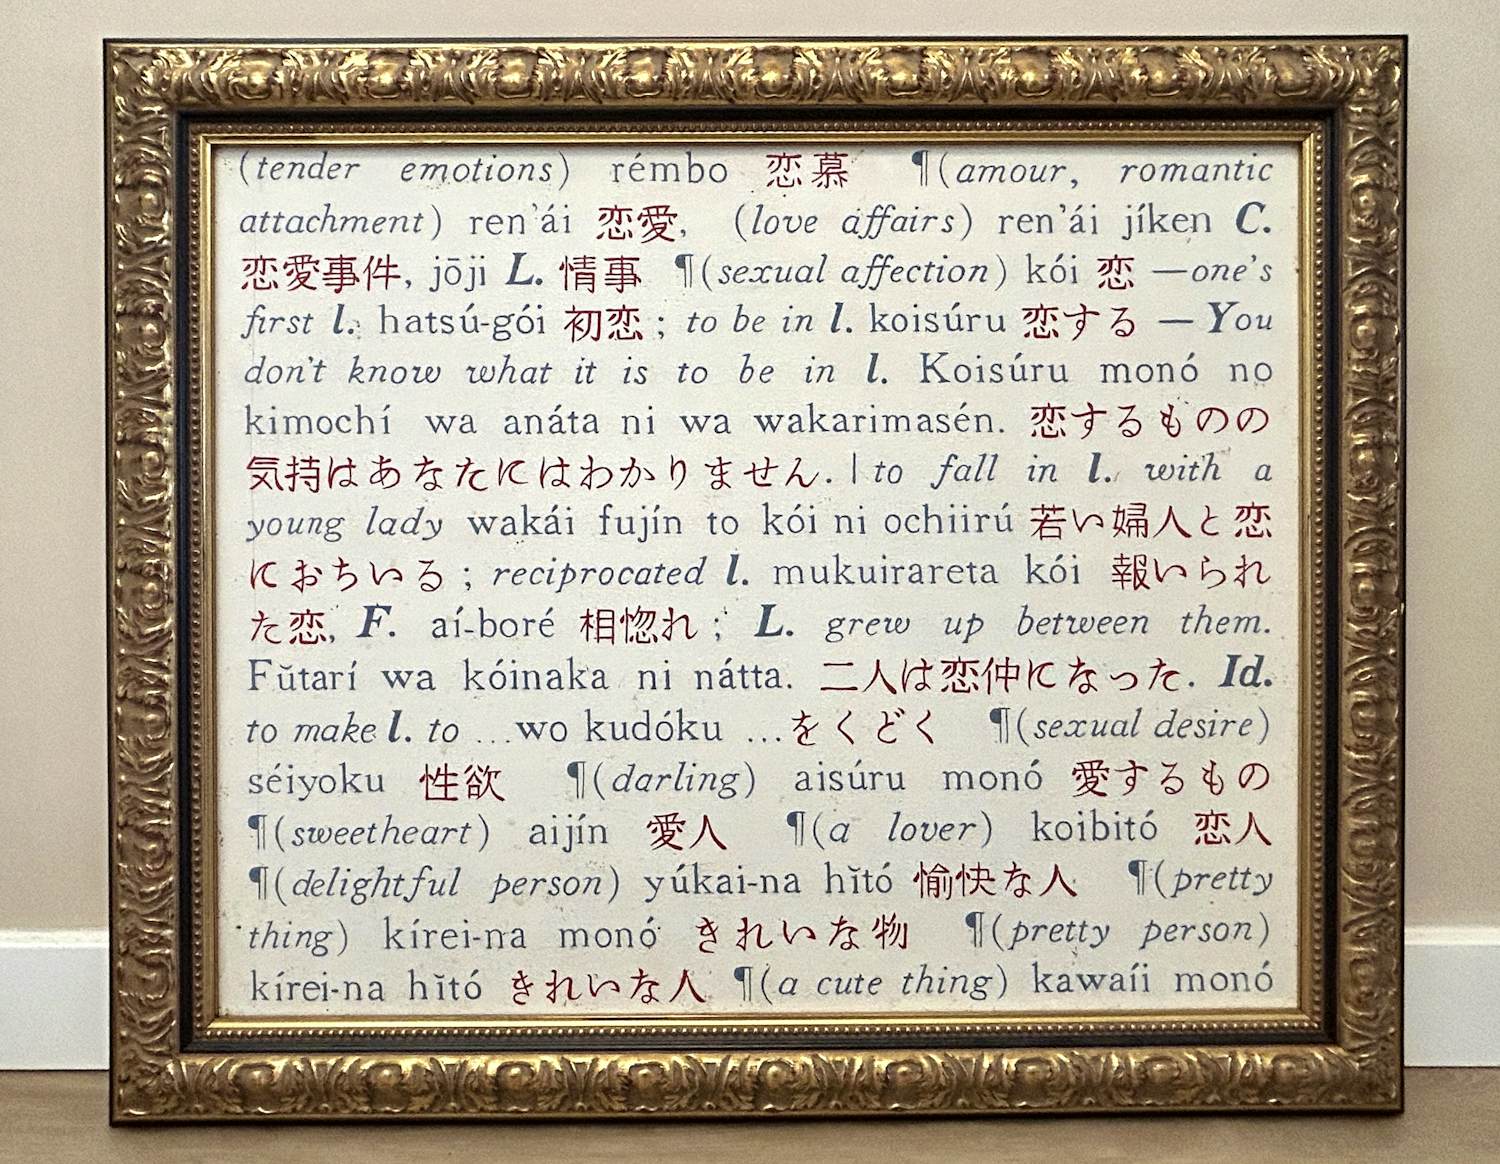 (tender emotions) rémbo 恋慕 ¶(amour, romantic
attachment) ren'ái 恋愛, (love affairs) ren'ái jíken C.
恋愛事件, jōji L. 情事 ¶(sexual affection) kói 恋 —one's
first l. hatsú-gói 初恋; to be in l. koisúru 恋する — You
don't know what it is to be in l. Koisúru monó no
kimochí wa anáta ni wa wakarimasén. 恋するものの
気持はあなたにはわかりません. | to fall in l. with a
young lady wakái fujín to kói ni ochiirú 若い婦人と恋
におちいる; reciprocated l. mukuirareta kói 報いられ
た恋, F. aí-boré 相惚れ; L. grew up between them.
Fŭtarí wa kóinaka ni nátta. 二人は恋仲になった. Id.
to make l. to ...wo kudóku ...をくどく ¶(sexual desire)
séiyoku 性欲 ¶(darling) aisúru monó 愛するもの
¶(sweetheart) aijín 愛人 ¶(a lover) koibitó 恋人
¶(delightful person) yúkai-na hĭtó 愉快な人 ¶(pretty
thing) kírei-na monó きれいな物 ¶(pretty person)
kírei-na hĭtó きれいな人 ¶(a cute thing) kawaíi monó